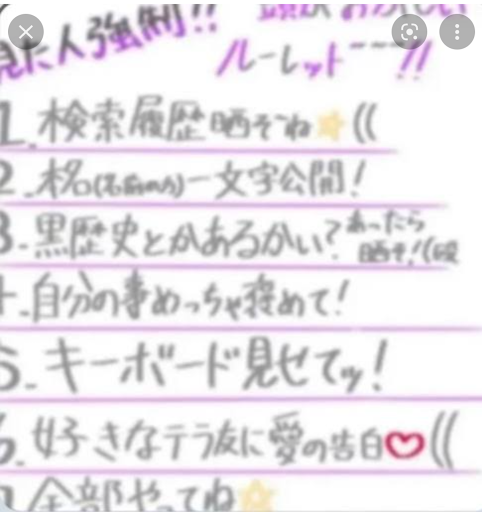 見た人強制!! 頭がおかしい
ルーレット~~~!!
1. 検索履歴晒そーね☆((
2. 本名(名前のみ)一文字公開!
3. 黒歴史とかあるかい?あったら
晒そ!(殴
4. 自分の事めっちゃ褒めて!
5. キーボード見せてッ!
6. 好きなテラ友に愛の告白♡((
7 全部やってね☆